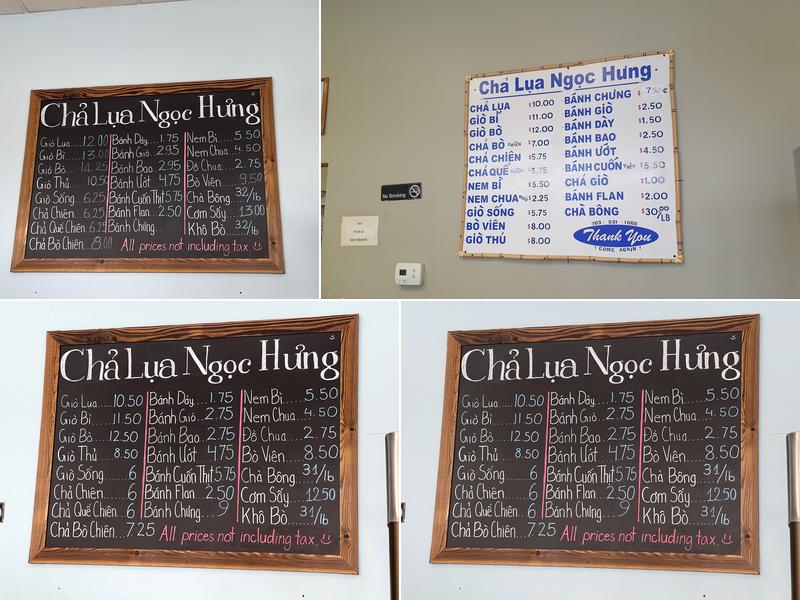 Chả Lụa Ngọc Hưng
Giò Lụa.....12.00 Bánh Dày..1.75 Nem Bì.....5.50
Giò Bì.....13.00 Bánh Giò...2.95 Nem Chua...4.50
Giò Bò Bánh Bao....2.95 Đồ Chua.....2.75
Giò Thủ.....10.50 Bánh Ướt...4.75 Bò Viên.....9.50
Giò Sống....6.25 Bánh Cuốn Thịt 5.75 Chà Bông....32/lb
Chả Chiên....6.25 Bánh Flan...2.50 Cơm Sấy...13.00
Chả Quế Chiên..6.25 Bánh Chưng.. Khô Bò.....32/lb
Chả Bò Chiên...8.00 All prices not including tax.
Chả Lụa Ngọc Hưng
CHẢ LỤA $10.00 BÁNH CHƯNG $
GIÒ BÌ $11.00 BÁNH GIÒ $2.50
GIÒ BÒ $12.00 BÁNH DÀY $1.50
CHẢ BÒ CHIÊN $7.00 BÁNH BAO $2.50
CHẢ CHIÊN $5.75 BÁNH ƯỚT $4.50
CHẢ QUẾ $5.75 BÁNH CUỐN $5.50
NEM BÌ $5.50 CHẢ GIÒ $1.00
NEM CHUA $2.25 BÁNH FLAN $2.00
GIÒ SỐNG $5.75 CHÀ BÔNG $30.00/LB
BÒ VIÊN $8.00
GIÒ THỦ $8.00
763-531-1868
Thank You
! COME AGAIN !
No Smoking
Chả Lụa Ngọc Hưng
Giò Lụa.....10.50 Bánh Dày...1.75 Nem Bì.....5.50
Giò Bì.....11.50 Bánh Giò...2.75 Nem Chua...4.50
Giò Bò.....12.50 Bánh Bao....2.75 Đồ Chua.....2.75
Giò Thủ.....8.50 Bánh Ướt...4.75 Bò Viên.....8.50
Giò Sống.....6 Bánh Cuốn Thịt 5.75 Chà Bông....31/lb
Chả Chiên.....6 Bánh Flan...2.50 Cơm Sấy....12.50
Chả Quế Chiên..6 Bánh Chưng...9 Khô Bò.....31/lb
Chả Bò Chiên...7.25 All prices not including tax.
Chả Lụa Ngọc Hưng
Giò Lụa.....10.50 Bánh Dày...1.75 Nem Bì.....5.50
Giò Bì.....11.50 Bánh Giò...2.75 Nem Chua...4.50
Giò Bò.....12.50 Bánh Bao....2.75 Đồ Chua.....2.75
Giò Thủ.....8.50 Bánh Ướt...4.75 Bò Viên.....8.50
Giò Sống.....6 Bánh Cuốn Thịt 5.75 Chà Bông....31/lb
Chả Chiên.....6 Bánh Flan...2.50 Cơm Sấy....12.50
Chả Quế Chiên..6 Bánh Chưng...9 Khô Bò.....31/lb
Chả Bò Chiên...7.25 All prices not including tax.